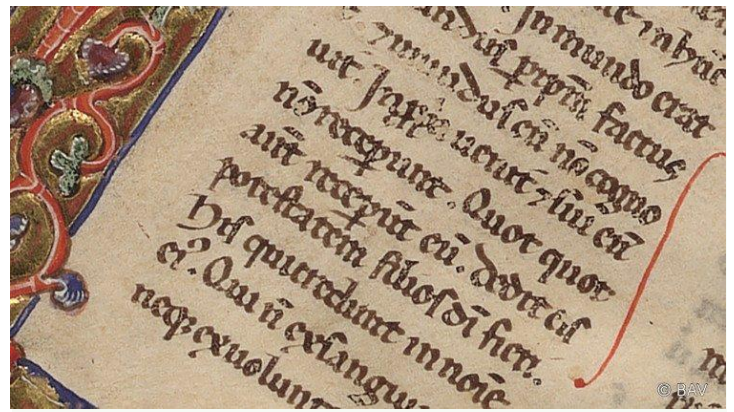 te in hūc
In mundo erat
dus p ipm factus
mundus eū nō cogno
uit. In ppria uenit ⁊ sui eū
nō receperunt. Quot quot
aūt receperūt eū. dedit eis
potestatem filios di fieri.
His qui credunt in noīe
ei⁹. Qui ñ ex sangui
neq; ex uolunt
© BAV